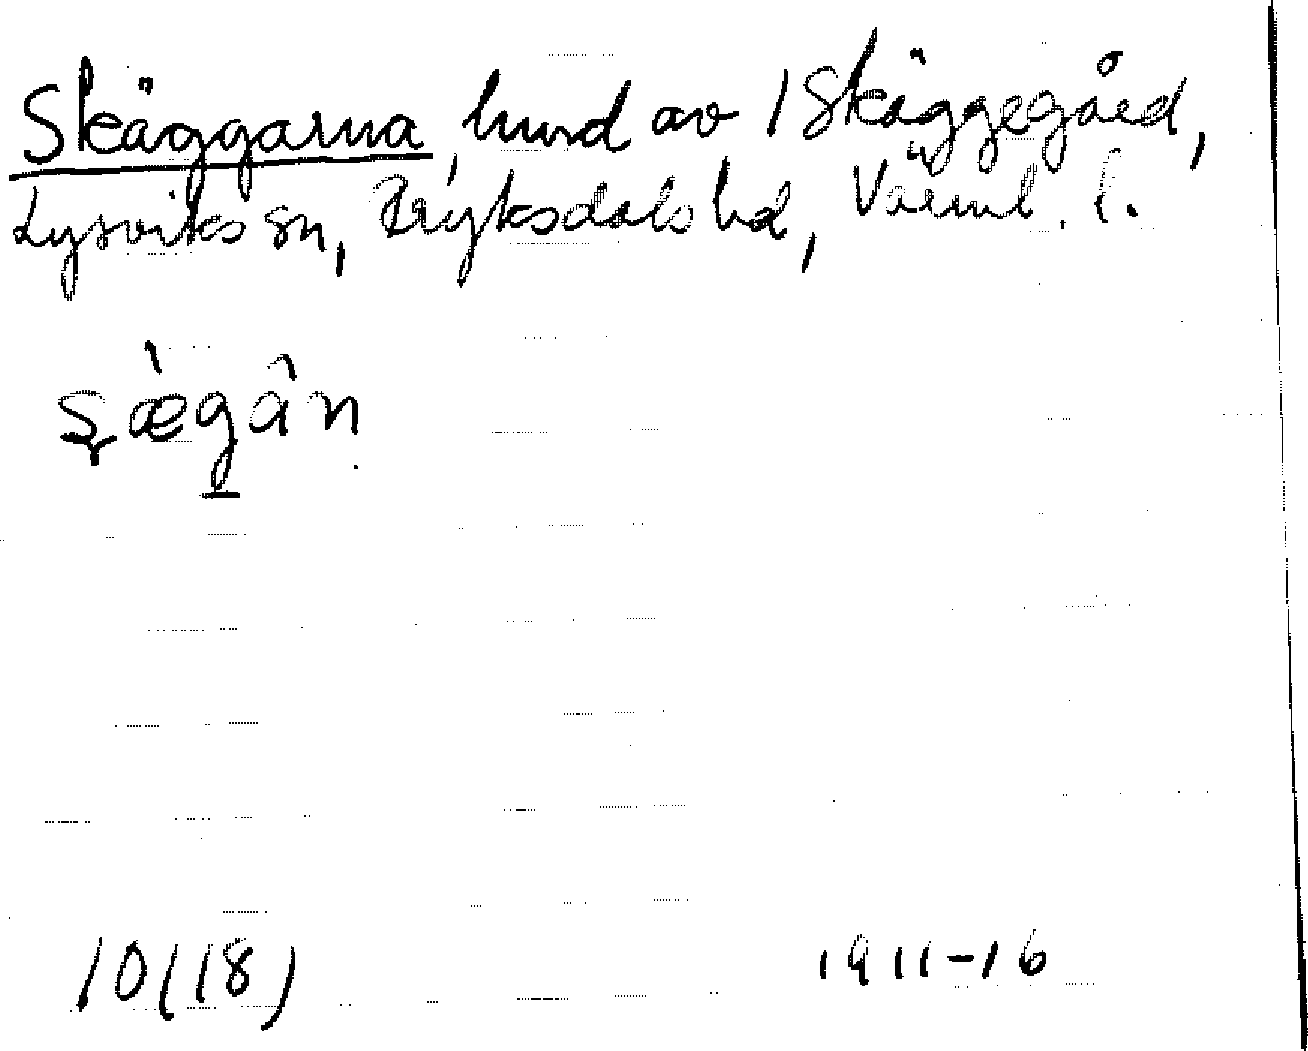 Skäggarna, hmd av 1 Skäggegård,
Lysviks sn, Fryksdals hd, Värml. l.
s̨æ̀gân
10(18) 1911-16